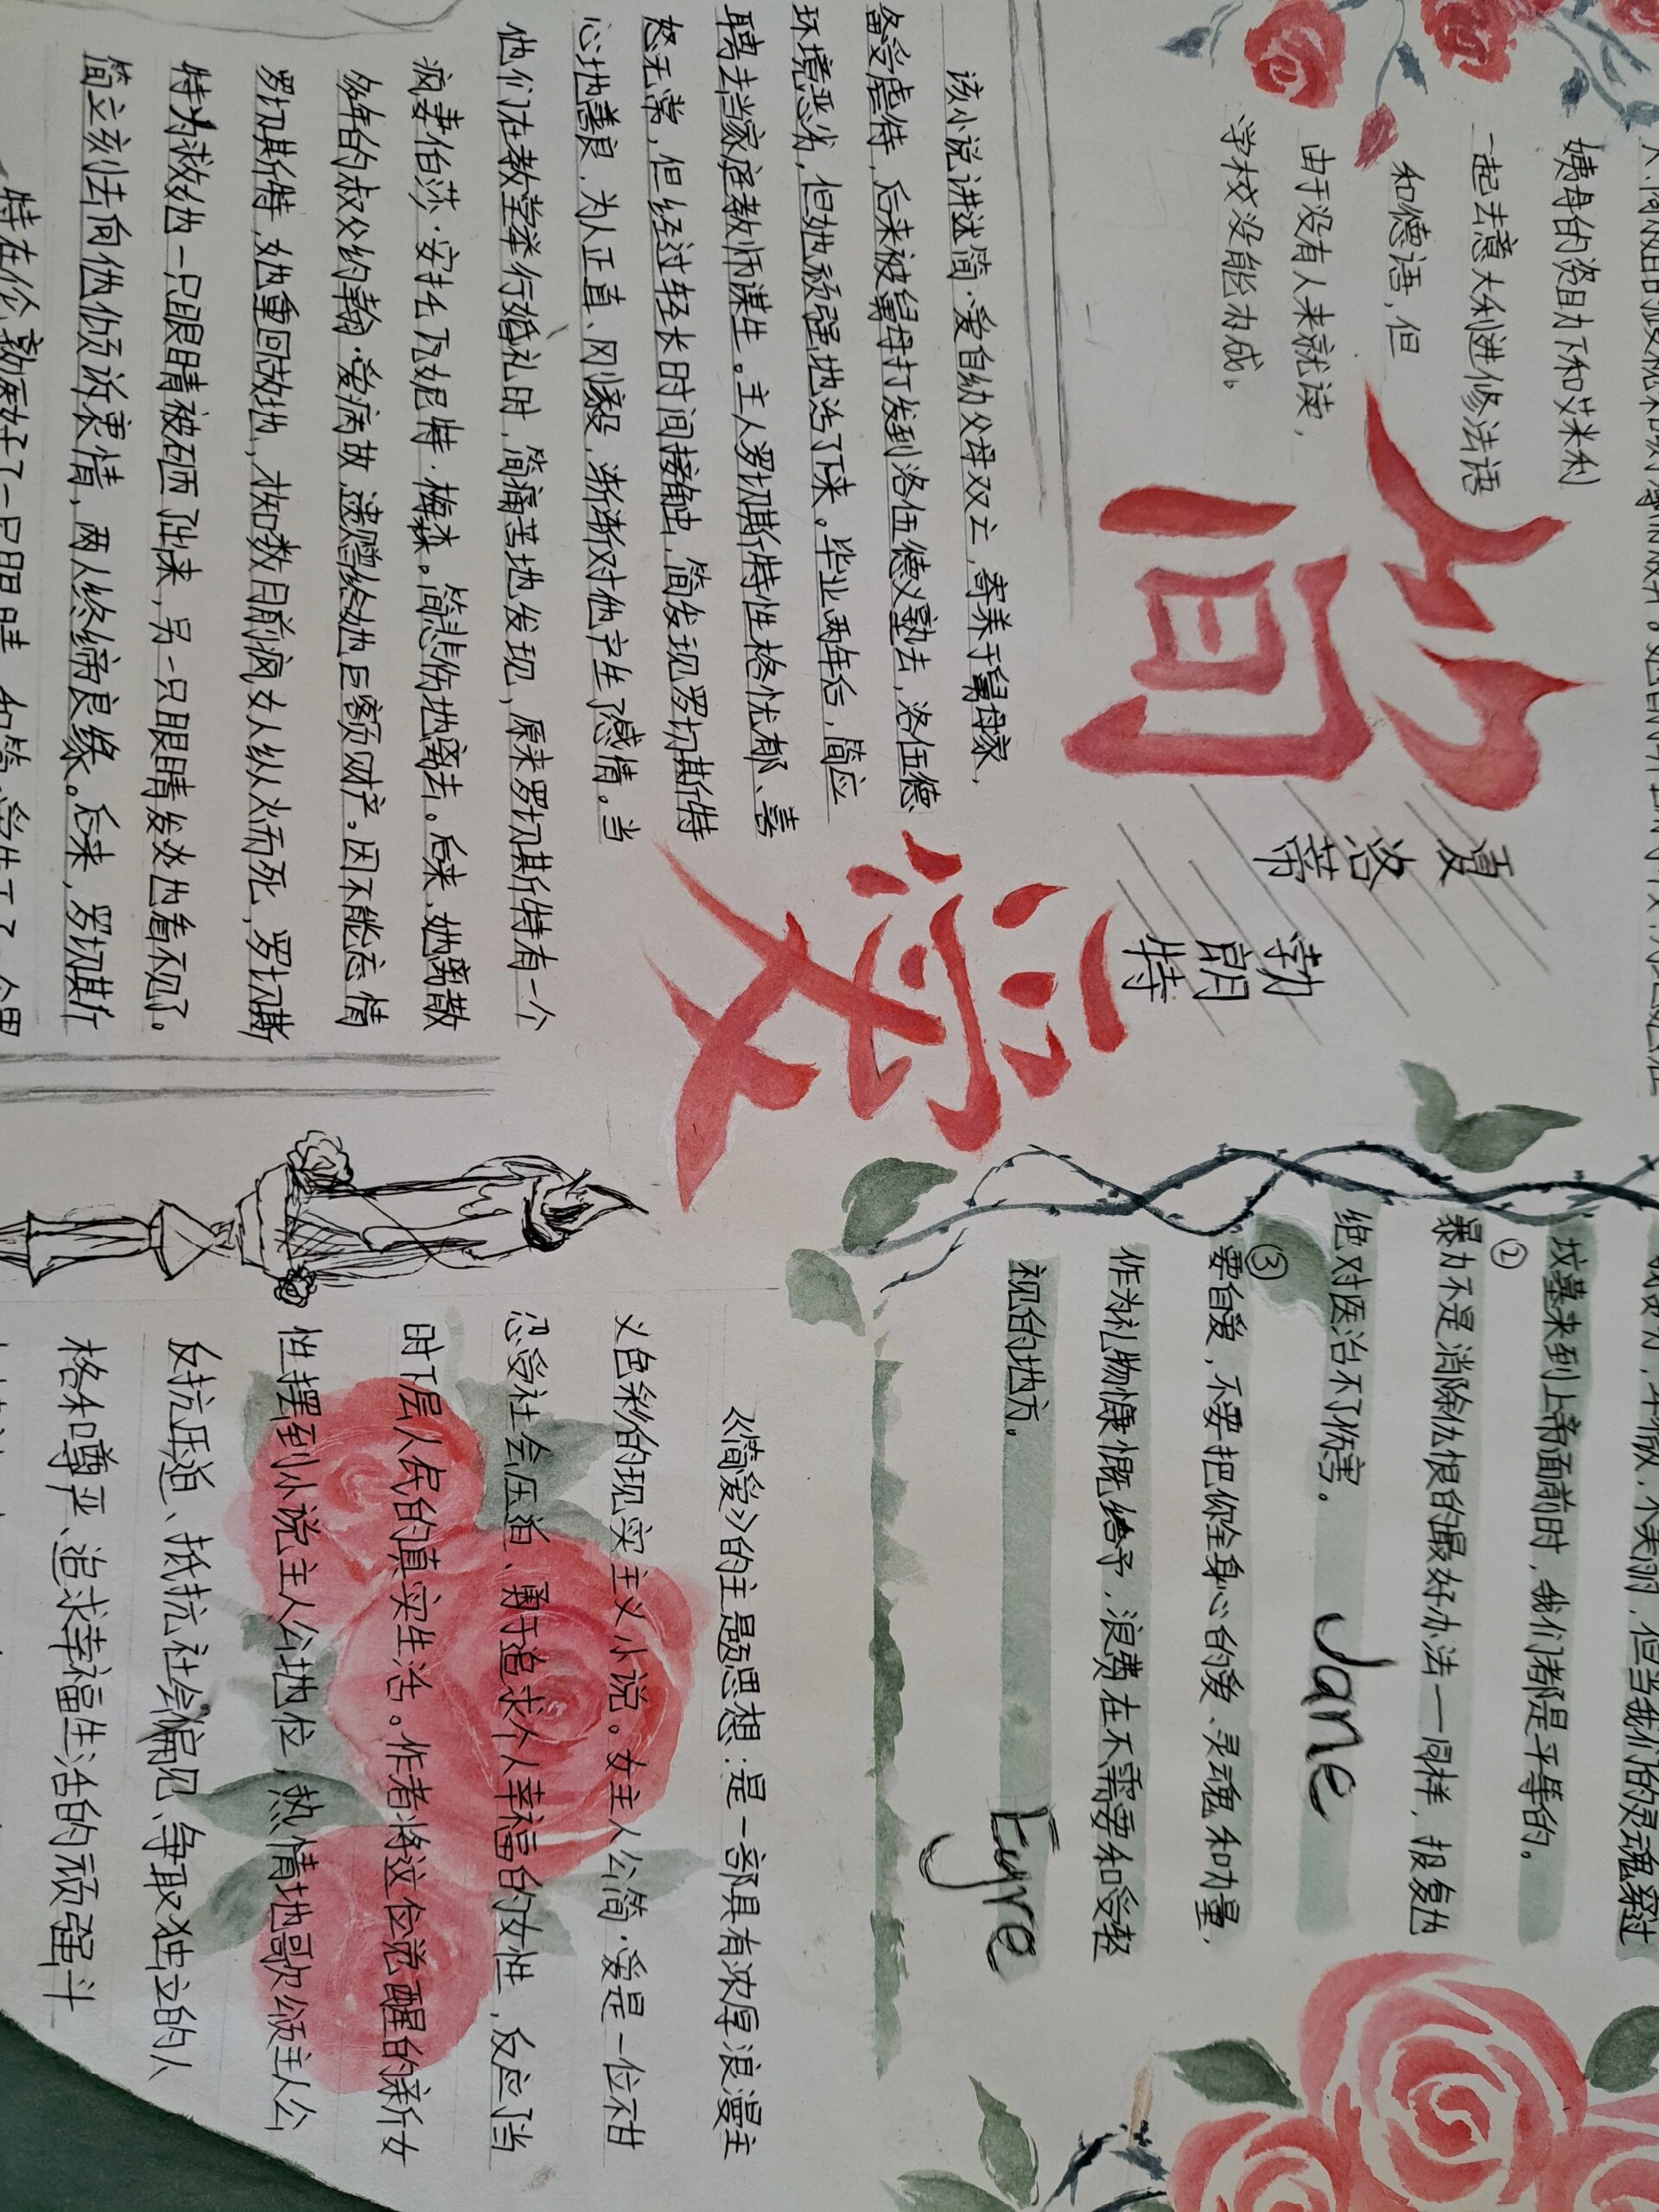 姨母的资助下和艾米利
一起去意大利进修法语
和德语，但
由于没有人来就读，
学校没能办成。
简爱
夏洛蒂
勃朗特
该小说讲述简·爱自幼父母双亡，寄养于舅母家，
备受虐待，后来被舅母打发到洛伍德义塾去，洛伍德
环境恶劣，但她顽强地活了下来。毕业两年后，简应
聘去当家庭教师谋生。主人罗切斯特性格忧郁、喜
怒无常，但经过轻长时间接触，简发现罗切斯特
心地善良，为人正直、刚毅，渐渐对他产生了感情。当
他们在教堂举行婚礼时，简痛苦地发现，原来罗切斯特有一个
疯妻伯莎·安托瓦妮特·梅森。简悲伤地离去。后来，她离散
多年的叔父约翰·爱病故，遗赠给她巨额财产。因不能忘情
罗切斯特，她重回故地，才知数月前疯女人纵火而死，罗切斯
特为救她一只眼睛被砸了出来，另一只眼睛发炎也看不见了。
简立刻去向他倾诉衷情，两人终缔良缘。后来，罗切斯
特在伦敦医好了一只眼睛，和简·爱生了
②
坟墓来到上帝面前时，我们都是平等的。
暴力不是消除仇恨的最好办法——同样，报复也
绝对医治不了伤害。
③
要自爱，不要把你全身心的爱、灵魂和力量，
作为礼物慷慨给予，浪费在不需要和受轻
视的地方。
Jane
Eyre
《简爱》的主题思想：是一部具有浓厚浪漫主
义色彩的现实主义小说。女主人公简·爱是一位不甘
忍受社会压迫、勇于追求个人幸福的女性，反应了当
时下层人民的真实生活。作者将这位觉醒的新女
性摆到小说主人公地位，热情地歌颂主人公
反抗压迫、抵抗社会偏见、争取独立的人
格和尊严、追求幸福生活的顽强斗